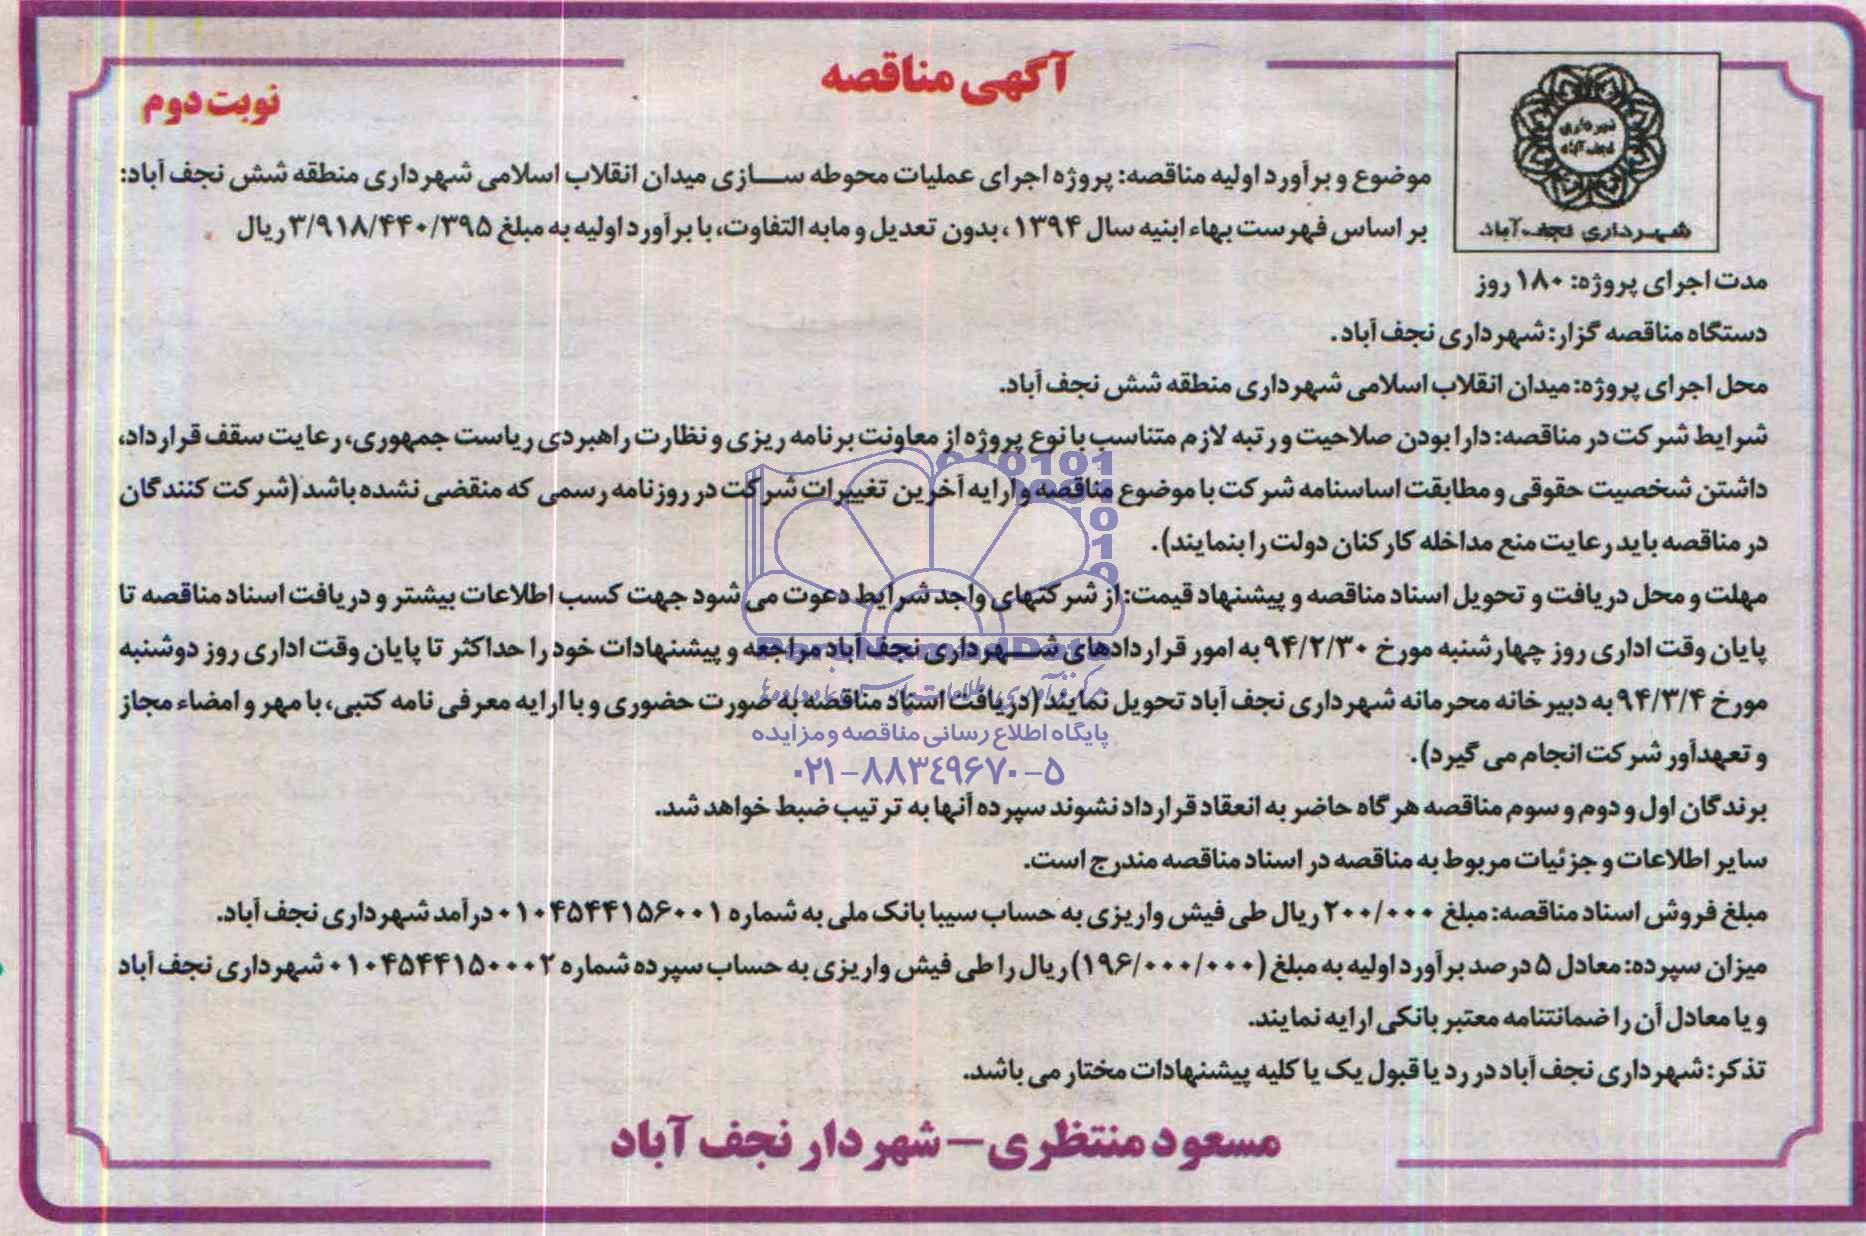 آگهی مناقصه
نوبت دوم
شهرداری نجف آباد
شهرداری نجف آباد
موضوع و برآورد اولیه مناقصه: پروژه اجرای عملیات محوطه سازی میدان انقلاب اسلامی شهرداری منطقه شش نجف آباد:
بر اساس فهرست بهاء ابنیه سال ۱۳۹۴، بدون تعدیل و مابه التفاوت، با برآورد اولیه به مبلغ ۳/۹۱۸/۴۴۰/۳۹۵ ریال
مدت اجرای پروژه: ۱۸۰ روز
دستگاه مناقصه گزار: شهرداری نجف آباد.
محل اجرای پروژه: میدان انقلاب اسلامی شهرداری منطقه شش نجف آباد.
شرایط شرکت در مناقصه: دارا بودن صلاحیت و رتبه لازم متناسب با نوع پروژه از معاونت برنامه ریزی و نظارت راهبردی ریاست جمهوری، رعایت سقف قرارداد،
داشتن شخصیت حقوقی و مطابقت اساسنامه شرکت با موضوع مناقصه و ارایه آخرین تغییرات شرکت در روزنامه رسمی که منقضی نشده باشد (شرکت کنندگان
در مناقصه باید رعایت منع مداخله کارکنان دولت را بنمایند).
مهلت و محل دریافت و تحویل اسناد مناقصه و پیشنهاد قیمت: از شرکتهای واجد شرایط دعوت می شود جهت کسب اطلاعات بیشتر و دریافت اسناد مناقصه تا
پایان وقت اداری روز چهارشنبه مورخ ۹۴/۲/۳۰ به امور قراردادهای شهرداری نجف آباد مراجعه و پیشنهادات خود را حداکثر تا پایان وقت اداری روز دوشنبه
مورخ ۹۴/۳/۴ به دبیرخانه محرمانه شهرداری نجف آباد تحویل نمایند (دریافت اسناد مناقصه به صورت حضوری و با ارایه معرفی نامه کتبی، با مهر و امضاء مجاز
پایگاه اطلاع رسانی مناقصه و مزایده
و تعهدآور شرکت انجام می گیرد).
۰۲۱-۸۸۳۴۹۶۷۰-۵
برندگان اول و دوم و سوم مناقصه هرگاه حاضر به انعقاد قرارداد نشوند سپرده آنها به ترتیب ضبط خواهد شد.
سایر اطلاعات و جزئیات مربوط به مناقصه در اسناد مناقصه مندرج است.
مبلغ فروش اسناد مناقصه: مبلغ ۲۰۰/۰۰۰ ریال طی فیش واریزی به حساب سیبا بانک ملی به شماره ۰۱۰۴۵۴۴۱۵۶۰۰۱ درآمد شهرداری نجف آباد.
میزان سپرده: معادل ۵ درصد برآورد اولیه به مبلغ (۱۹۶/۰۰۰/۰۰۰) ریال را طی فیش واریزی به حساب سپرده شماره ۰۱۰۴۵۴۴۱۵۰۰۰۲ شهرداری نجف آباد
و یا معادل آن را ضمانتنامه معتبر بانکی ارایه نمایند.
تذکر: شهرداری نجف آباد در رد یا قبول یک یا کلیه پیشنهادات مختار می باشد.
مسعود منتظری – شهردار نجف آباد